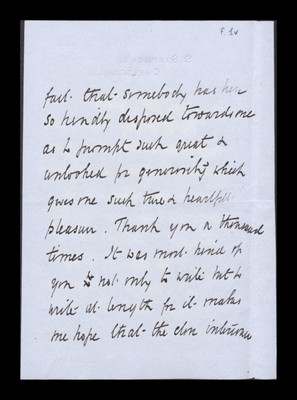 fact that somebody has been
so kindly disposed towards me
as to prompt such great &
unlooked for generosity which
gives me such true & heartfelt
pleasure. Thank you a thousand
times. It was most kind of
you not only to write but to
write at length for it makes
me hope that the close